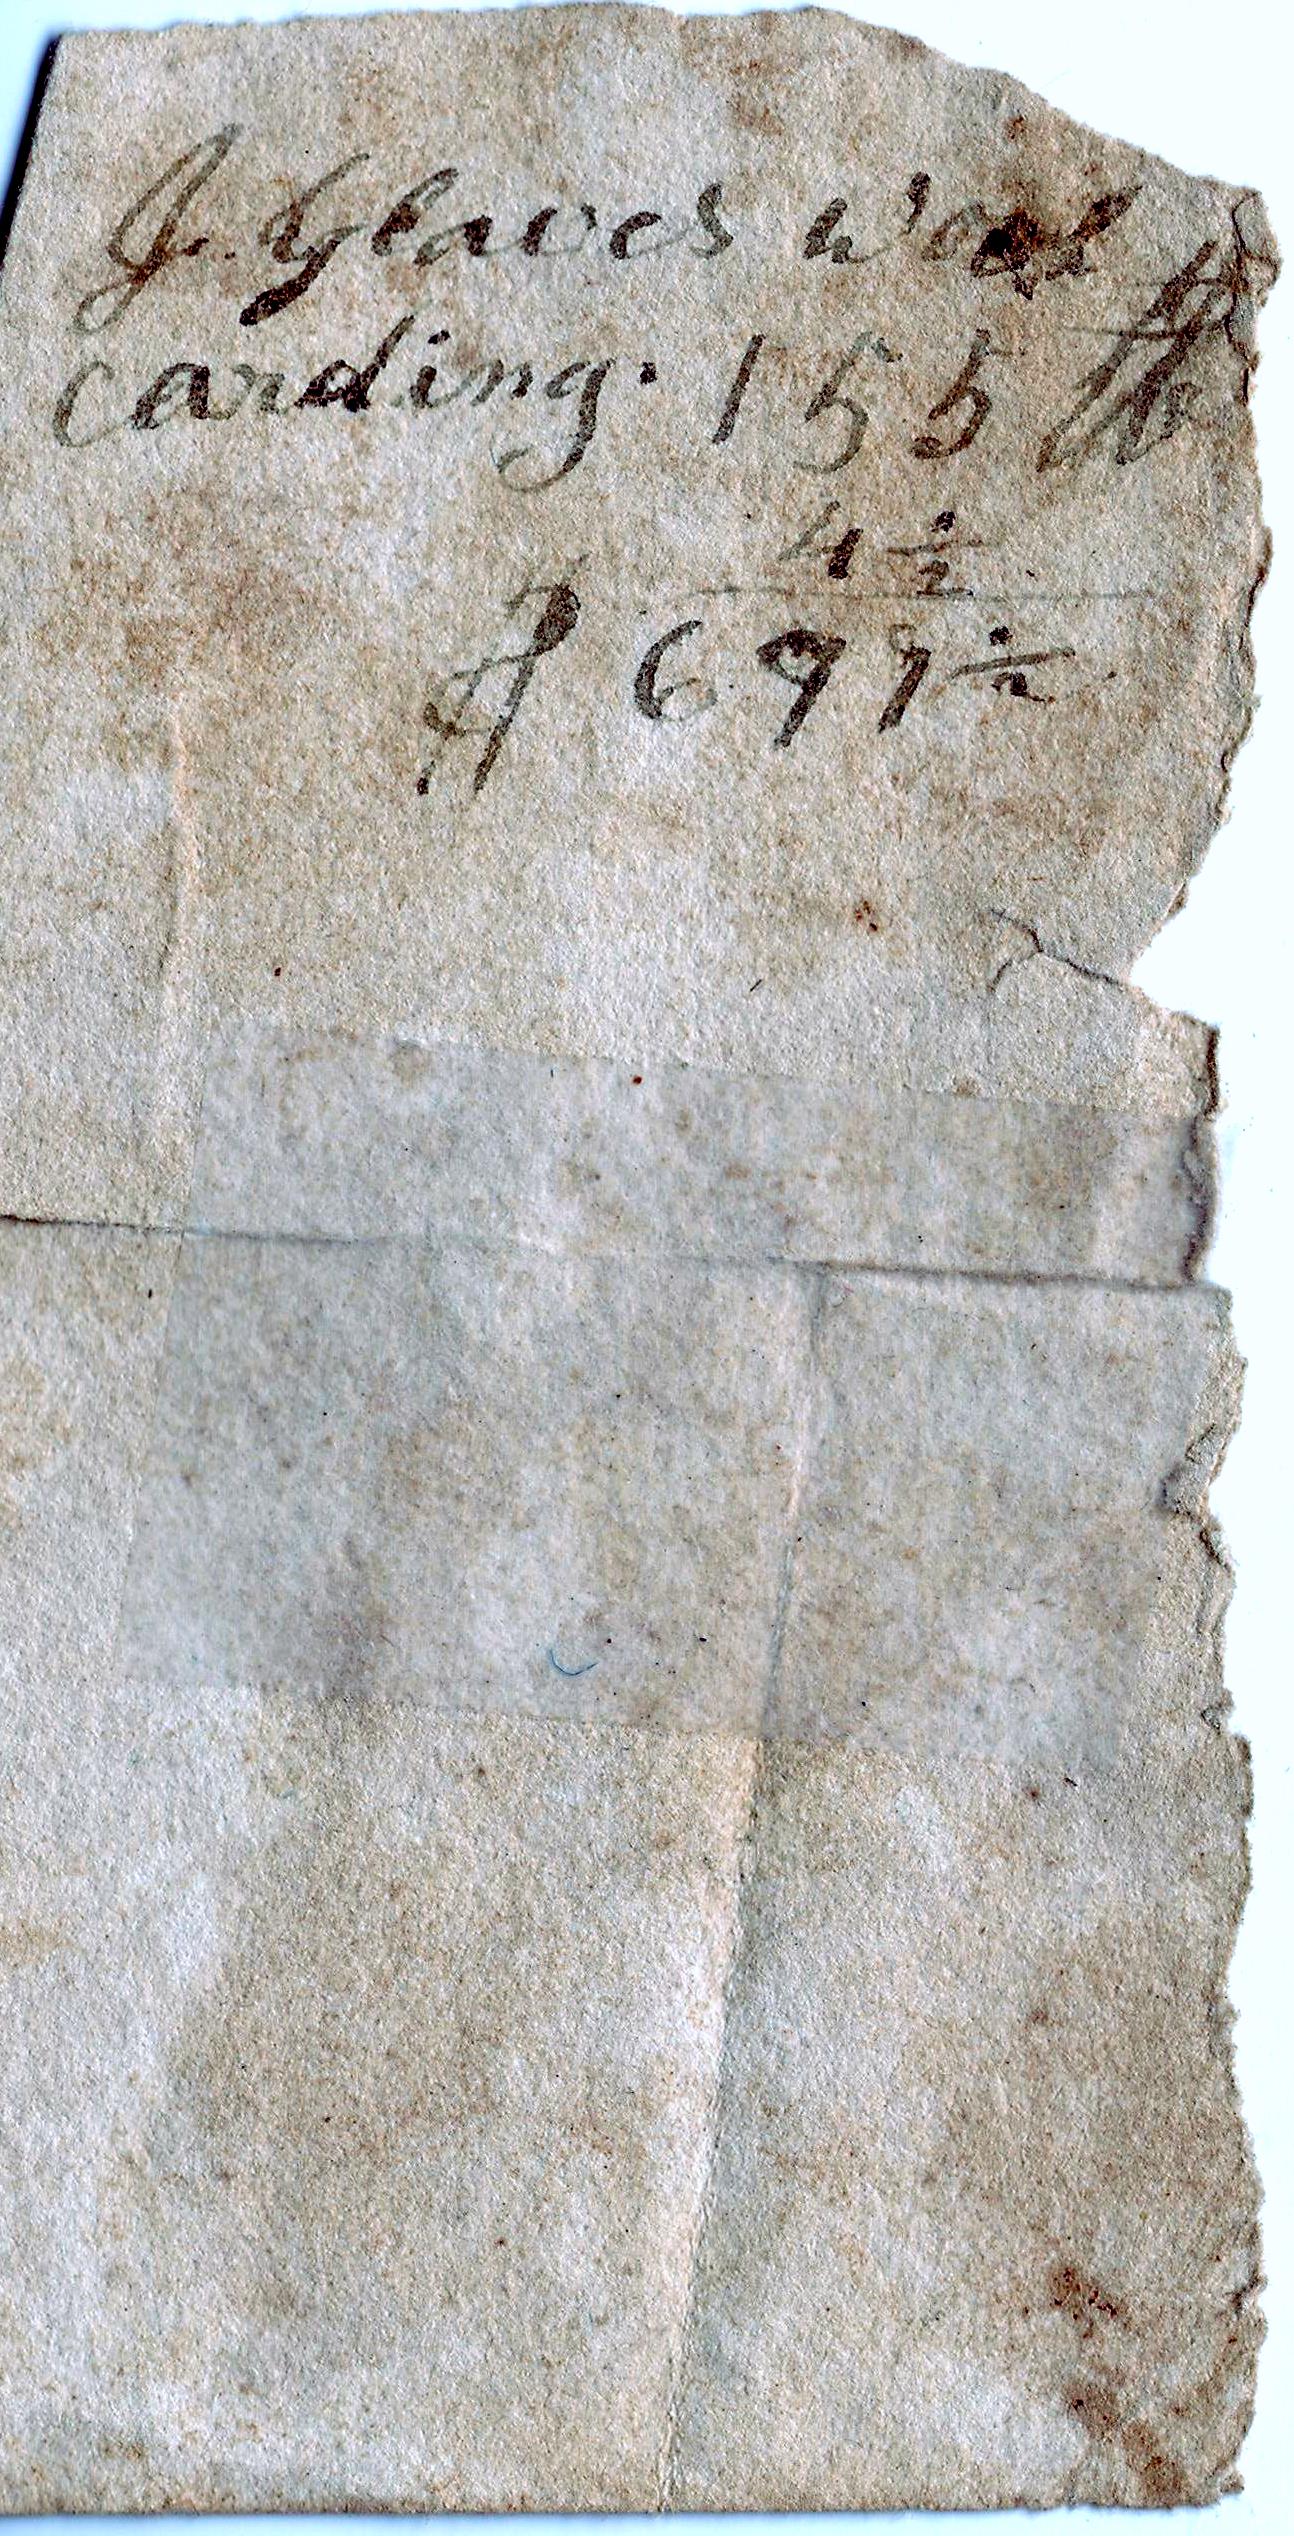 J. Gleaves wool
carding. 155 lb
4 1/2
$ 6 97 1/2